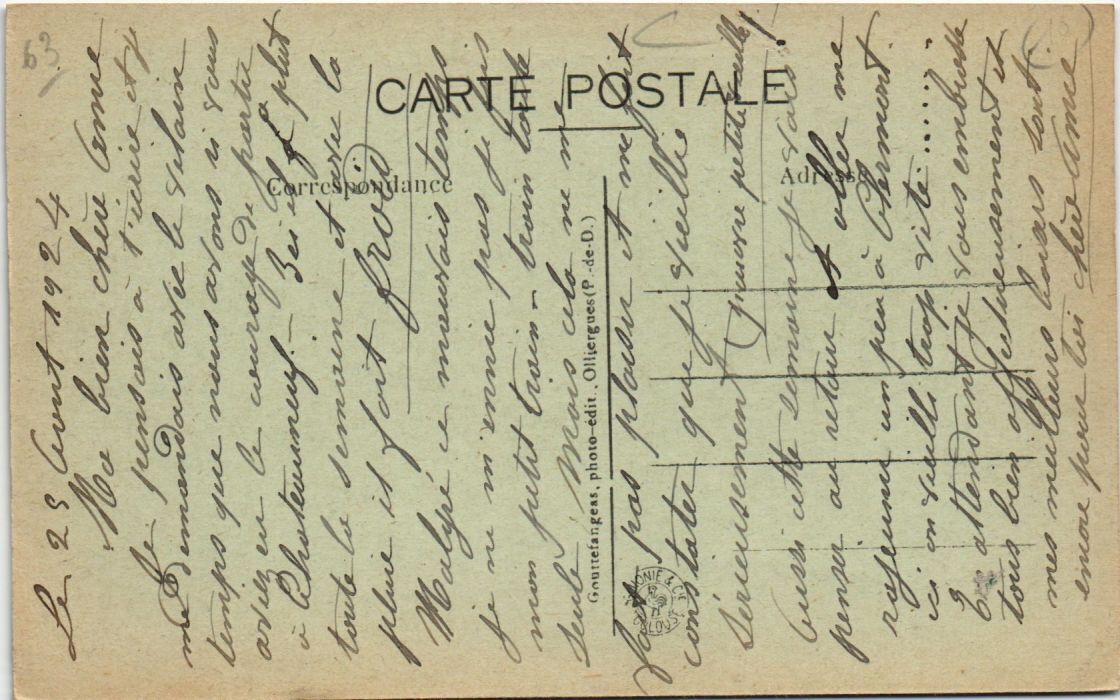 63
CARTE POSTALE
Correspondance
Adresse
Gouttefangeas, photo-édit., Olliergues (P.-de-D.)
Le 25 Août 1924
Ma bien chère Amie
Je pensais à t'écrire et je
me demandais avec le vilain
temps que nous avons si vous
aviez eu le courage de partir
à Chateauneuf. Ici il pleut
toute la semaine et avec la
pluie il fait froid
Malgré ce mauvais temps
je ne m'ennuie pas je vais
mon petit train-train toute
seule Mais cela ne me
fait pas plaisir et me fait
constater que je vieillie
sérieusement (pauvre petite vieille!
Aussi cette semaine je vais
penser au retour & aller me
rajeunir un peu à Clermont.
ici on vieilli trop vite ......
En attendant je vous embrasse
tous bien affectueusement et
mes meilleurs baisers sont
encore pour toi chère Amie